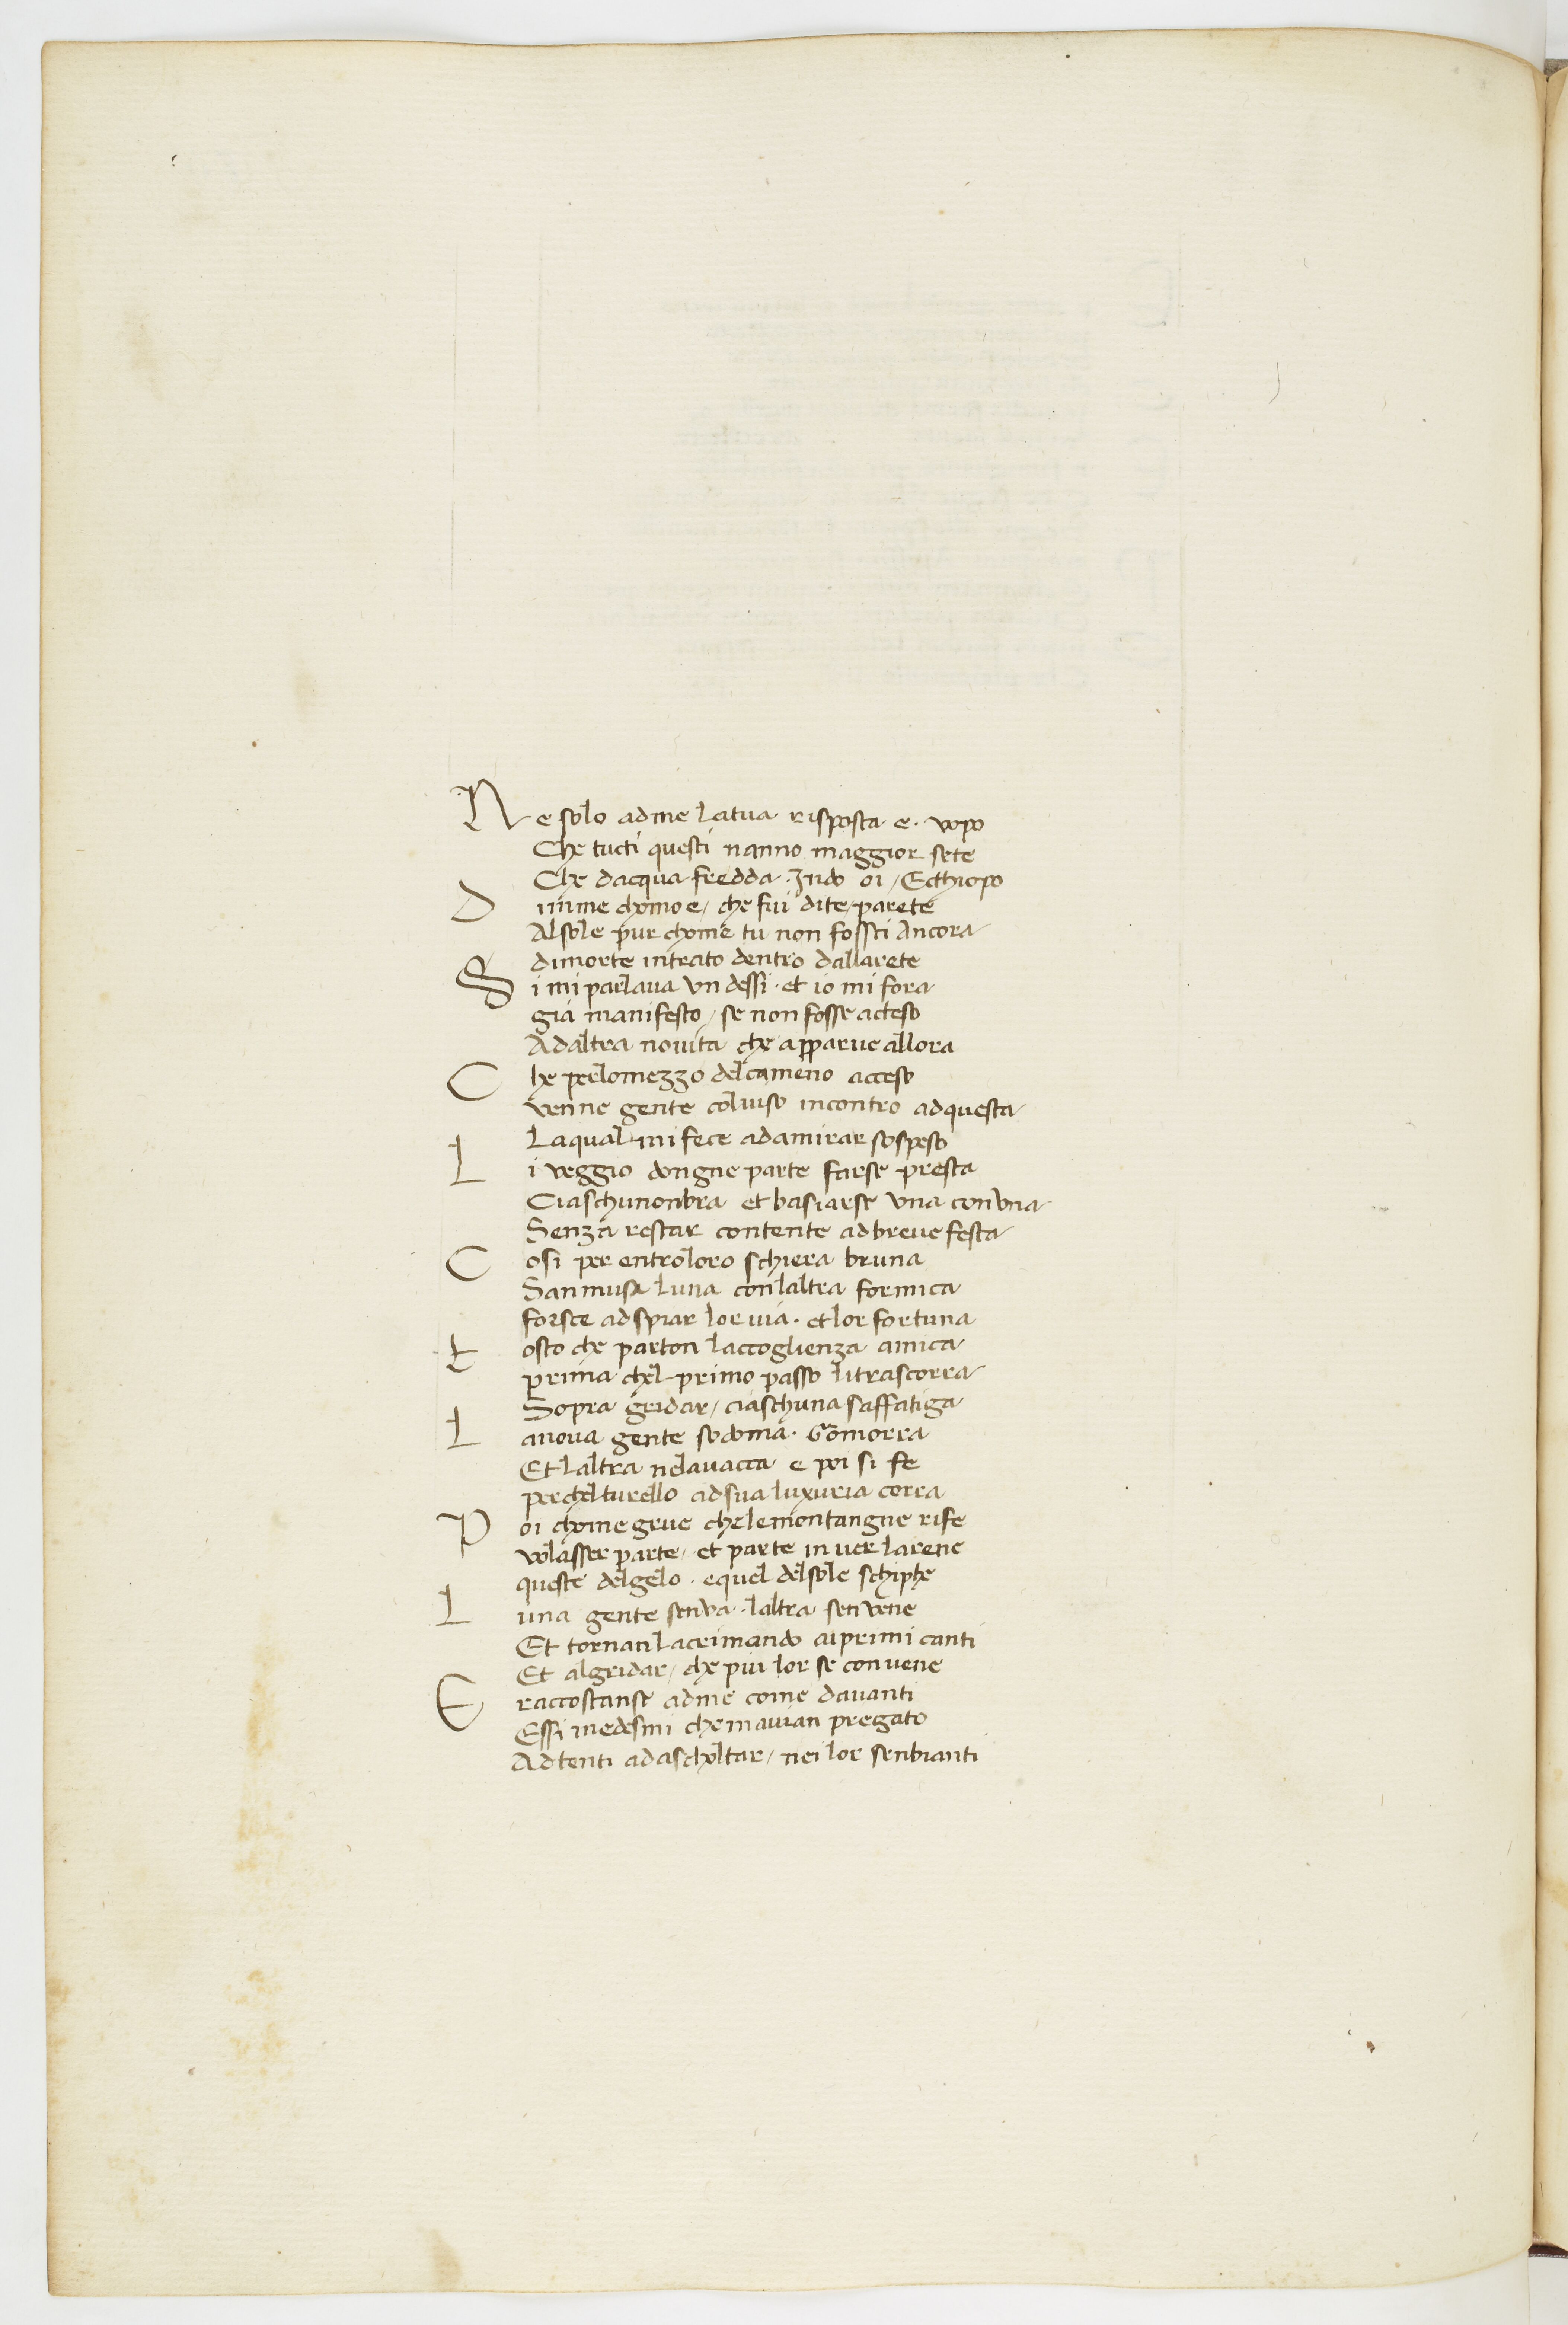 Ne solo adme latua risposta e. vopo
Che tucti questi nanno maggior sete
Che dacqua fredda. Indo oi / Ecthiopo
Dimme chomo e / che fui dite / parete
Al sole pur chome tu non fossci ancora
dimorte intrato dentro dallarete
Si mi parlaua vn dessi. et io mi fora
gia manifesto / se non fosse acteso
Adaltra nouita che apparue allora
Che perlomezzo delcameno acceso
venne gente coluiso incontro adquesta
Laqual mi fece adamirar sospeso
Li veggio dongne parte farse presta
Ciaschunonbra et basiarse vna convna
Senza restar contente adbreue festa
Cosi per entroloro schiera bruna
Sammusa luna conlaltra formica
forsce adspiar lor uia. et lor fortuna
tosto che parton laccoglienza amica
prima chel primo passo litrascorra
Sopra gridar / ciaschuna saffatiga
Lanoua gente sodoma. Gomorra
Et laltra nelauacca e poi si fe
perchelturello adsua luxuria corra
Poi chome grue chelemontangne rife
volasser parte / et parte inuer larene
queste delgelo. equel delsole schiphe
Luna gente senva. laltra senvene
Et tornan lacrimando aiprimi canti
Et algridar / che piu lor se conuene
Eraccostanse adme come dauanti
Essi medesmi chemauian pregato
Adtenti adascholtar / nei lor senbianti